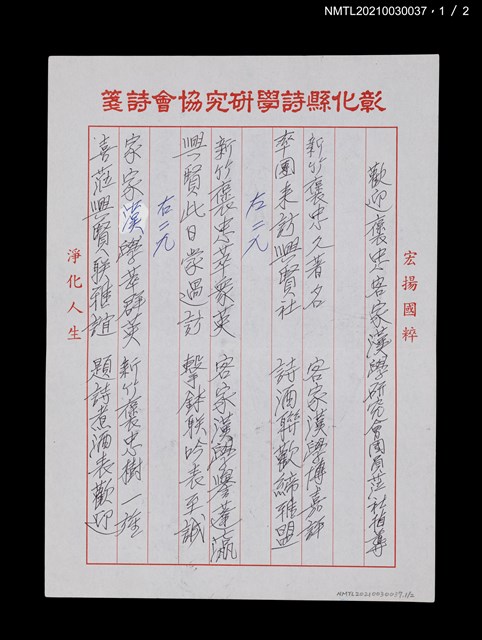 NMTL20210030037，1／2
彰化縣詩學研究協會詩箋
宏揚國粹
歡迎褒忠客家漢學研究會團員蒞社指導
新竹褒忠久著名 客家漢學博嘉評
率團來訪興賢社 詩酒聯歡締雅盟
右二九
新竹褒忠萃眾英 客家漢學譽蓬瀛
興賢此日蒙過訪 擊鉢聯吟表至誠
右二九
家家漢學萃群英 新竹褒忠樹一旌
喜蒞興賢聯雅誼 題詩煮酒表歡迎
淨化人生
NMTL20210030037,1/2